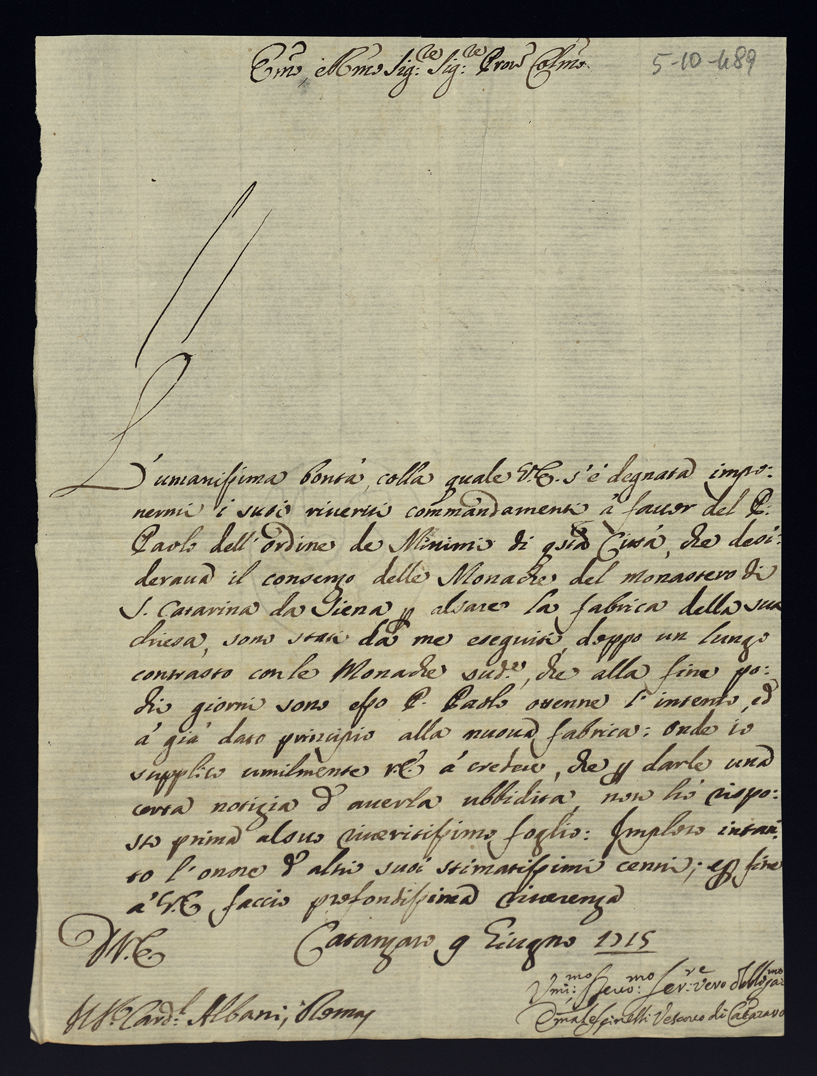 Em̃o, e Rm̃o Sig:re Sig:re Prõn Colm̃o.
5-10-489
L'umanissima bontà, colla quale V.E. s'è degnata impo:
nermi i suoi riveriti commandamenti à favor del P.
Paolo dell'ordine de Minimi di q̃sta Città, che desi:
derava il consenzo delle Monache del monastero di
S. Catarina da Siena p alsare la fabrica della sua
chiesa, sono stati da me eseguiti, doppo un lungo
contrasto con le Monache sud.e, che alla fine po:
chi giorni sono esso P. Paolo ottenne l'intento, ed
à già dato principio alla nuova fabrica: onde io
supplico umilmente V.E. à credere, che p darle una
certa notizia d'averla ubbidita, non hò rispo:
sto prima al suo riveritissimo foglio: Imploro intan:
to l'onore d'altri suoi stimatissimi cenni; e p fine
à V.E. faccio profondissima riverenza
D V.E. Catanzaro 9 Giugno 1715
Card.l Albani, Roma
Vmi:mo Devo:mo Ser:re vero Obliga:mo
Spinelli Vescovo di Catãzaro